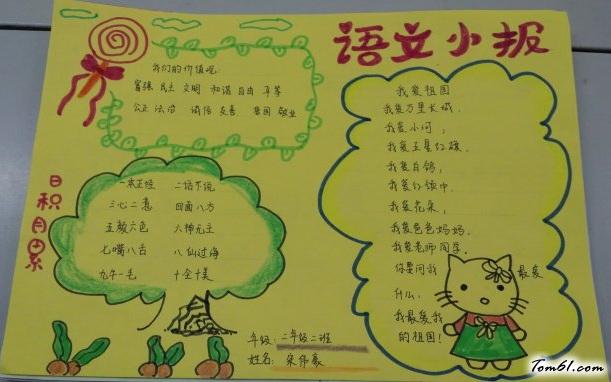 语文小报
我们的价值观
富强 民主 文明 和谐 自由 平等
公正 法治 诚信 友善 爱国 敬业
日积月累
一本正经 二话不说
三心二意 四面八方
五颜六色 六神无主
七嘴八舌 八仙过海
九牛一毛 十全十美
我爱祖国
我爱万里长城,
我爱小河,
我爱五星红旗,
我爱白鸽,
我爱红领巾,
我爱花朵,
我爱爸爸妈妈,
我爱老师同学,
你要问我 最爱
什么,
我最爱我
的祖国!
年级:二年级二班
姓名:宋伟豪
Tom61.com